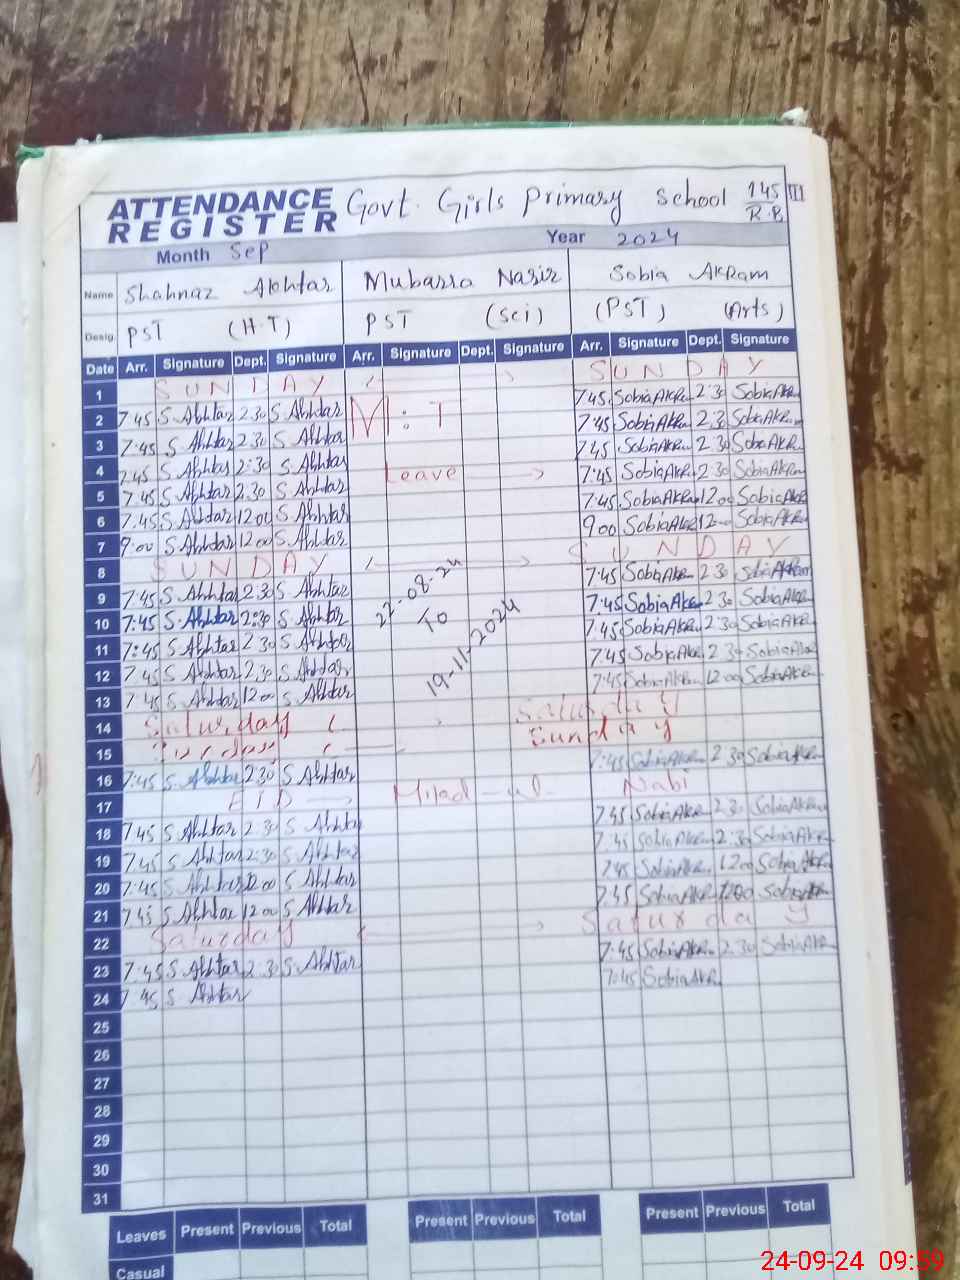 ATTENDANCE REGISTER Govt. Girls Primary School 145/R.B III
Month Sep Year 2024
Name Shahnaz Akhtar Mubarra Nasir Sobia AkRam
Desig. PST (H.T) PST (Sci) (PST) (Arts)
Date Arr. Signature Dept. Signature Arr. Signature Dept. Signature Arr. Signature Dept. Signature
1 SUNDAY SUNDAY
2 7:45 S. Akhtar 2:30 S. Akhtar M:T 7:45 Sobia AkRam 2:30 Sobia AkRam
3 7:45 S. Akhtar 2:30 S. Akhtar 7:45 Sobia AkRam 2:30 Sobia AkRam
4 7:45 S. Akhtar 2:30 S. Akhtar Leave 7:45 Sobia AkRam 2:30 Sobia AkRam
5 7:45 S. Akhtar 2:30 S. Akhtar 7:45 Sobia AkRam 2:30 Sobia AkRam
6 7:45 S. Akhtar 12:00 S. Akhtar 7:45 Sobia AkRam 12:00 Sobia AkRam
7 9:00 S. Akhtar 12:00 S. Akhtar 9:00 Sobia AkRam 12:00 Sobia AkRam
8 SUNDAY SUNDAY
9 7:45 S. Akhtar 2:30 S. Akhtar 22-08-24 7:45 Sobia AkRam 2:30 Sobia AkRam
10 7:45 S. Akhtar 2:30 S. Akhtar To 7:45 Sobia AkRam 2:30 Sobia AkRam
11 7:45 S. Akhtar 2:30 S. Akhtar 7:45 Sobia AkRam 2:30 Sobia AkRam
12 7:45 S. Akhtar 2:30 S. Akhtar 19-11-2024 7:45 Sobia AkRam 2:30 Sobia AkRam
13 7:45 S. Akhtar 12:00 S. Akhtar 7:45 Sobia AkRam 12:00 Sobia AkRam
14 Saturday Saturday
15 Sunday
16 7:45 S. Akhtar 2:30 S. Akhtar 7:45 Sobia AkRam 2:30 Sobia AkRam
17 EID Milad-ul- Nabi
18 7:45 S. Akhtar 2:30 S. Akhtar 7:45 Sobia AkRam 2:30 Sobia AkRam
19 7:45 S. Akhtar 2:30 S. Akhtar 7:45 Sobia AkRam 2:30 Sobia AkRam
20 7:45 S. Akhtar 12:00 S. Akhtar 7:45 Sobia AkRam 12:00 Sobia AkRam
21 7:45 S. Akhtar 12:00 S. Akhtar 7:45 Sobia AkRam 12:00 Sobia AkRam
22 Saturday Saturday
23 7:45 S. Akhtar 2:30 S. Akhtar 7:45 Sobia AkRam 2:30 Sobia AkRam
24 7:45 S. Akhtar 7:45 Sobia AkRam
25
26
27
28
29
30
31
Leaves Present Previous Total Present Previous Total Present Previous Total
Casual
24-09-24 09:59